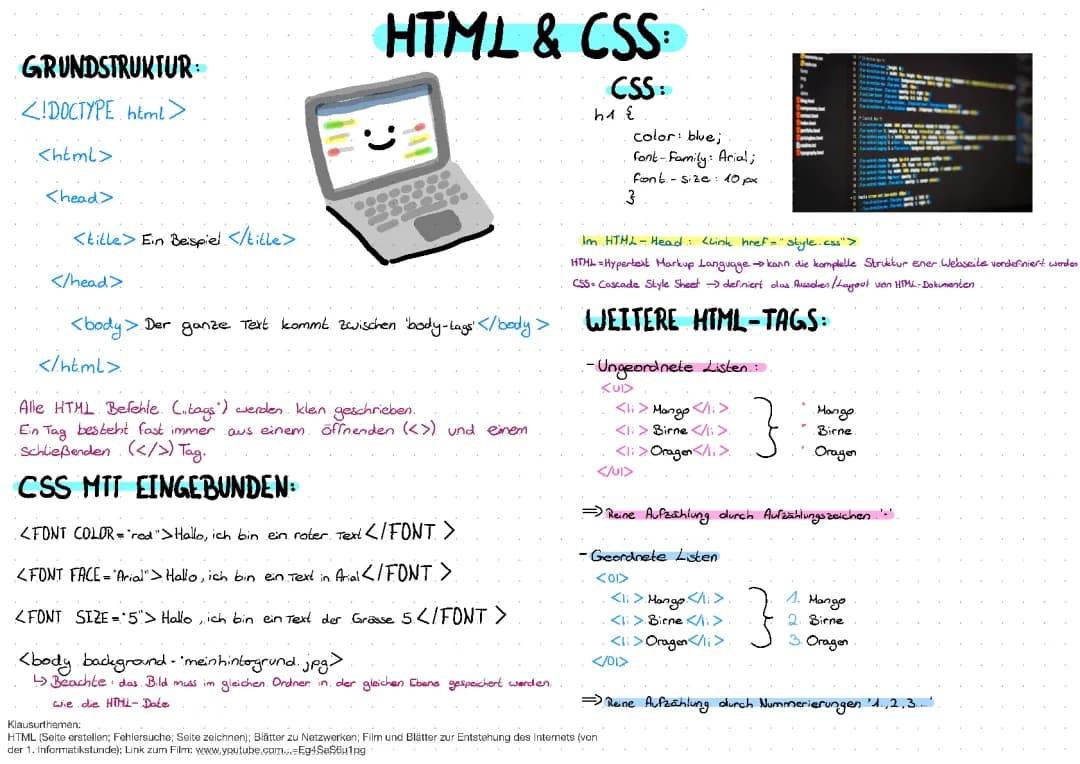 HTML & CSS:
GRUNDSTRUKTUR:
<!DOCTYPE html>
<html>
<head>
<title> Ein Beispiel </title>
</head>
<body> Der ganze Text kommt zwischen 'body-tags' </body>
</html>
Alle HTML Befehle („tags") werden klein geschrieben.
Ein Tag besteht fast immer aus einem öffnenden (<>) und einem
schließenden (</>) Tag.
CSS MIT EINGEBUNDEN:
<FONT COLOR="red">Hallo, ich bin ein roter Text</FONT>
<FONT FACE="Arial">Hallo, ich bin ein Text in Arial</FONT>
<FONT SIZE="5">Hallo, ich bin ein Text der Grösse 5</FONT>
<body background="meinhintergrund.jpg>
↳ Beachte: das Bild muss im gleichen Ordner in der gleichen Ebene gespeichert werden.
wie die HTML-Datei
CSS:
h1 {
color: blue;
font-Family: Arial;
font-size: 10 px
}
Im HTML-Head: <Link href="style.css">
HTML=Hypertext Markup Language → kann die komplette Struktur einer Webseite vordefiniert werden
CSS= Cascade Style Sheet → definiert das Aussehen/Layout von HTML-Dokumenten
WEITERE HTML-TAGS:
- Ungeordnete Listen:
<Ul>
<li> Mango </li> • Mango
<li> Birne </li> • Birne
<li> Oragen</li> • Oragen
</Ul>
⇒ Reine Aufzählung durch Aufzählungszeichen '•'
- Geordnete Listen
<Ol>
<li> Mango </li> 1. Mango
<li> Birne </li> 2. Birne
<li> Oragen</li> 3. Oragen
</Ol>
⇒ Reine Aufzählung durch Nummerierungen '1.,2,3...'
Klausurthemen:
HTML (Seite erstellen; Fehlersuche; Seite zeichnen); Blätter zu Netzwerken; Film und Blätter zur Entstehung des Internets (von
der 1. Informatikstunde); Link zum Film: www.youtube.com...=Eg4SaS6u1pg